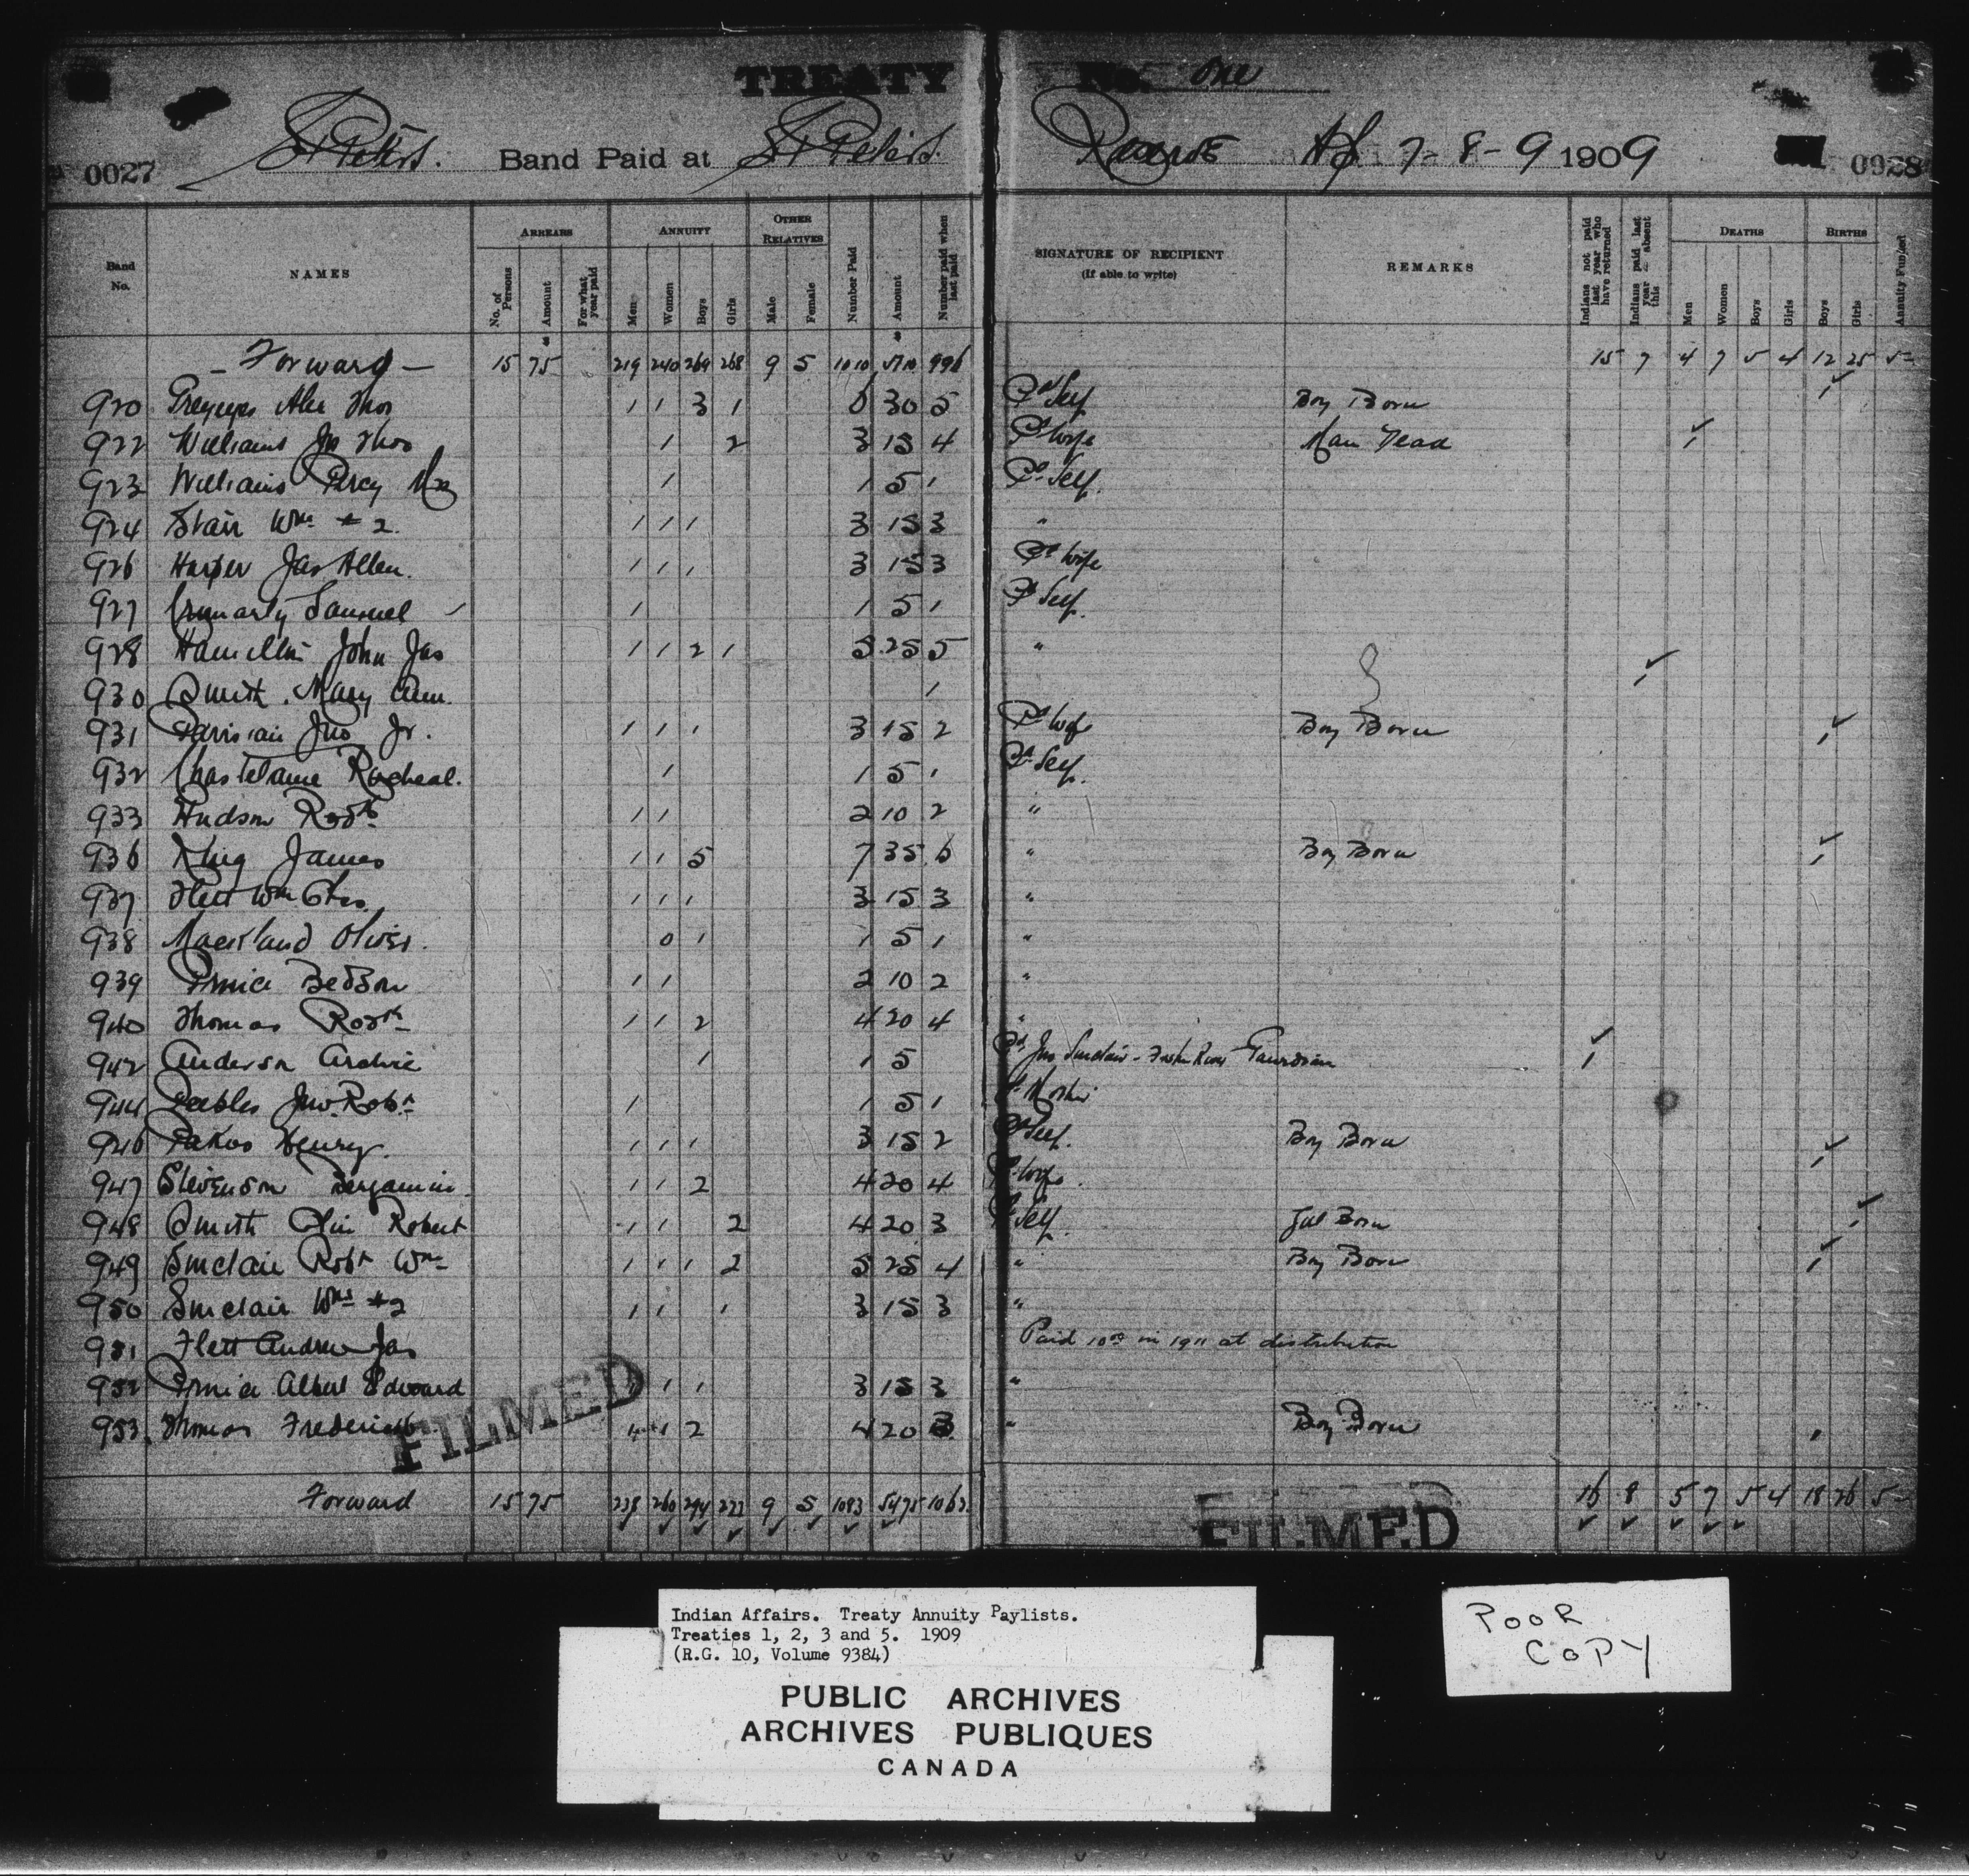 TREATY No. One
0027 St Peters. Band Paid at St Peters. Reserve 7-8-9 1909 0028
Band No. NAMES ARREARS No. of Persons Amount For what year paid ANNUITY Men Women Boys Girls OTHER RELATIVES Male Female Number Paid Amount Number paid when last paid SIGNATURE OF RECIPIENT (If able to write) REMARKS Indians not paid last year who have returned Indians paid last year & absent this DEATHS Men Women Boys Girls BIRTHS Boys Girls Annuity Funded
- Forward - 15 75 219 240 269 268 9 5 1010 996 15 7 4 7 5 4 12 25 5-
920 Alex Thos 1 1 3 1 6 30 5 Pd Self Boy Born 1
922 Williams Jn Thos 1 2 3 15 4 Pd Wife Man Dead 1
923 Williams Percy Mrs 1 1 5 1 Pd Self.
924 Stair Wm #2. 1 1 1 3 15 3 "
926 Harper Jas Allen. 1 1 1 3 15 3 Pd Wife
927 Cromarty Samuel 1 1 5 1 Pd Self.
928 Hamellin John Jas 1 1 2 1 5 25 5 "
930 Smith. Mary Ann. 1 1
931 Parisian Jno Jr. 1 1 1 3 15 2 Pd Wife Boy Born 1
932 Chastelaine Racheal. 1 1 5 1 Pd Self.
933 Hudson Robt 1 1 2 10 2 "
936 King James 1 1 5 7 35 6 " Boy Born 1
937 Flett Wm Chas. 1 1 1 3 15 3 "
938 Oliver. 0 1 1 5 1 "
939 Prince Bedson 1 1 2 10 2 "
940 Thomas Robt 1 1 2 4 20 4 "
942 Anderson Archie 1 1 5 Pd Jno Sinclair - Fisher River Gaurdian 1
944 Peebles Jno. Robt 1 1 5 1 Pd Mother
946 Pakoo Henry. 1 1 1 3 15 2 Pd Self. Boy Born 1
947 Stevenson Benjamin. 1 1 2 4 20 4 Pd Wife.
948 Smith Robert 1 1 2 4 20 3 Pd Self. Girl Born 1
949 Sinclair Robt Wm 1 1 1 2 5 25 4 " Boy Born 1
950 Sinclair Wm #2 1 1 1 3 15 3 "
951 Flett Andrew Jas Paid 10 00 in 1911 at distribution
952 Prince Albert Edward 1 1 1 3 15 3 "
953. Thomas Frederick 1 1 2 4 20 3 " Boy Born 1
FILMED
Forward 15 75 238 260 294 277 9 5 1083 5475 1062. 16 8 5 7 5 4 18 26 5-
FILMED
Indian Affairs. Treaty Annuity Paylists.
Treaties 1, 2, 3 and 5. 1909
(R.G. 10, Volume 9384)
PUBLIC ARCHIVES
ARCHIVES PUBLIQUES
CANADA
POOR
COPY